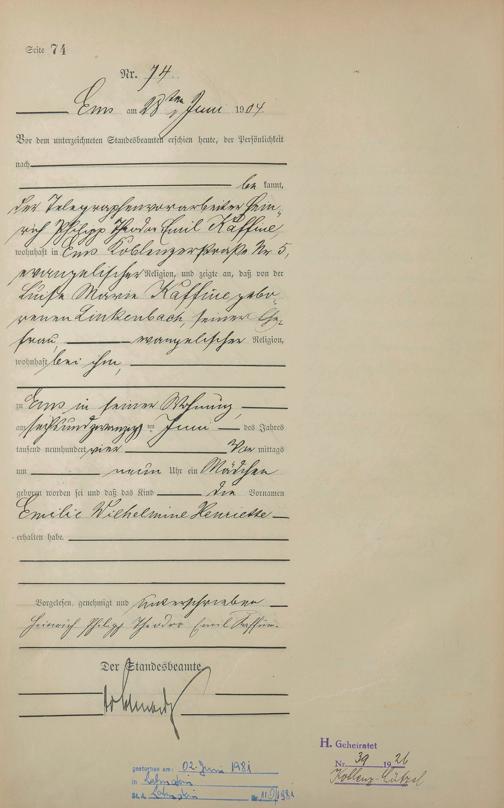 Seite 74
Nr. 74
Ems am 28ten Juni 1904
Vor dem unterzeichneten Standesbeamten erschien heute, der Persönlichkeit
nach
be kannt,
der Telegraphenvorarbeiter Hein-
rich Philipp Theodor Emil Kaffine
wohnhaft in Ems Koblenzerstraße Nr 5,
evangelischer Religion, und zeigte an, daß von der
Luise Marie Kaffine gebo-
renen Linkenbach, seiner Ehe-
frau, evangelischer Religion,
wohnhaft bei ihm,
zu Ems in seiner Wohnung,
am sechsundzwanzigsten Juni des Jahres
tausend neunhundert vier Vor mittags
um neun Uhr ein Mädchen
geboren worden sei und daß das Kind die Vornamen
Emilie Wilhelmine Henriette
erhalten habe.
Vorgelesen, genehmigt und unterschrieben
Heinrich Philipp Theodor Emil Kaffine.
Der Standesbeamte
H. Geheiratet
Nr. 39 1926
Koblenz-Lützel
gestorben am: 02. Juni 1981
in Lahnstein
Lahnstein